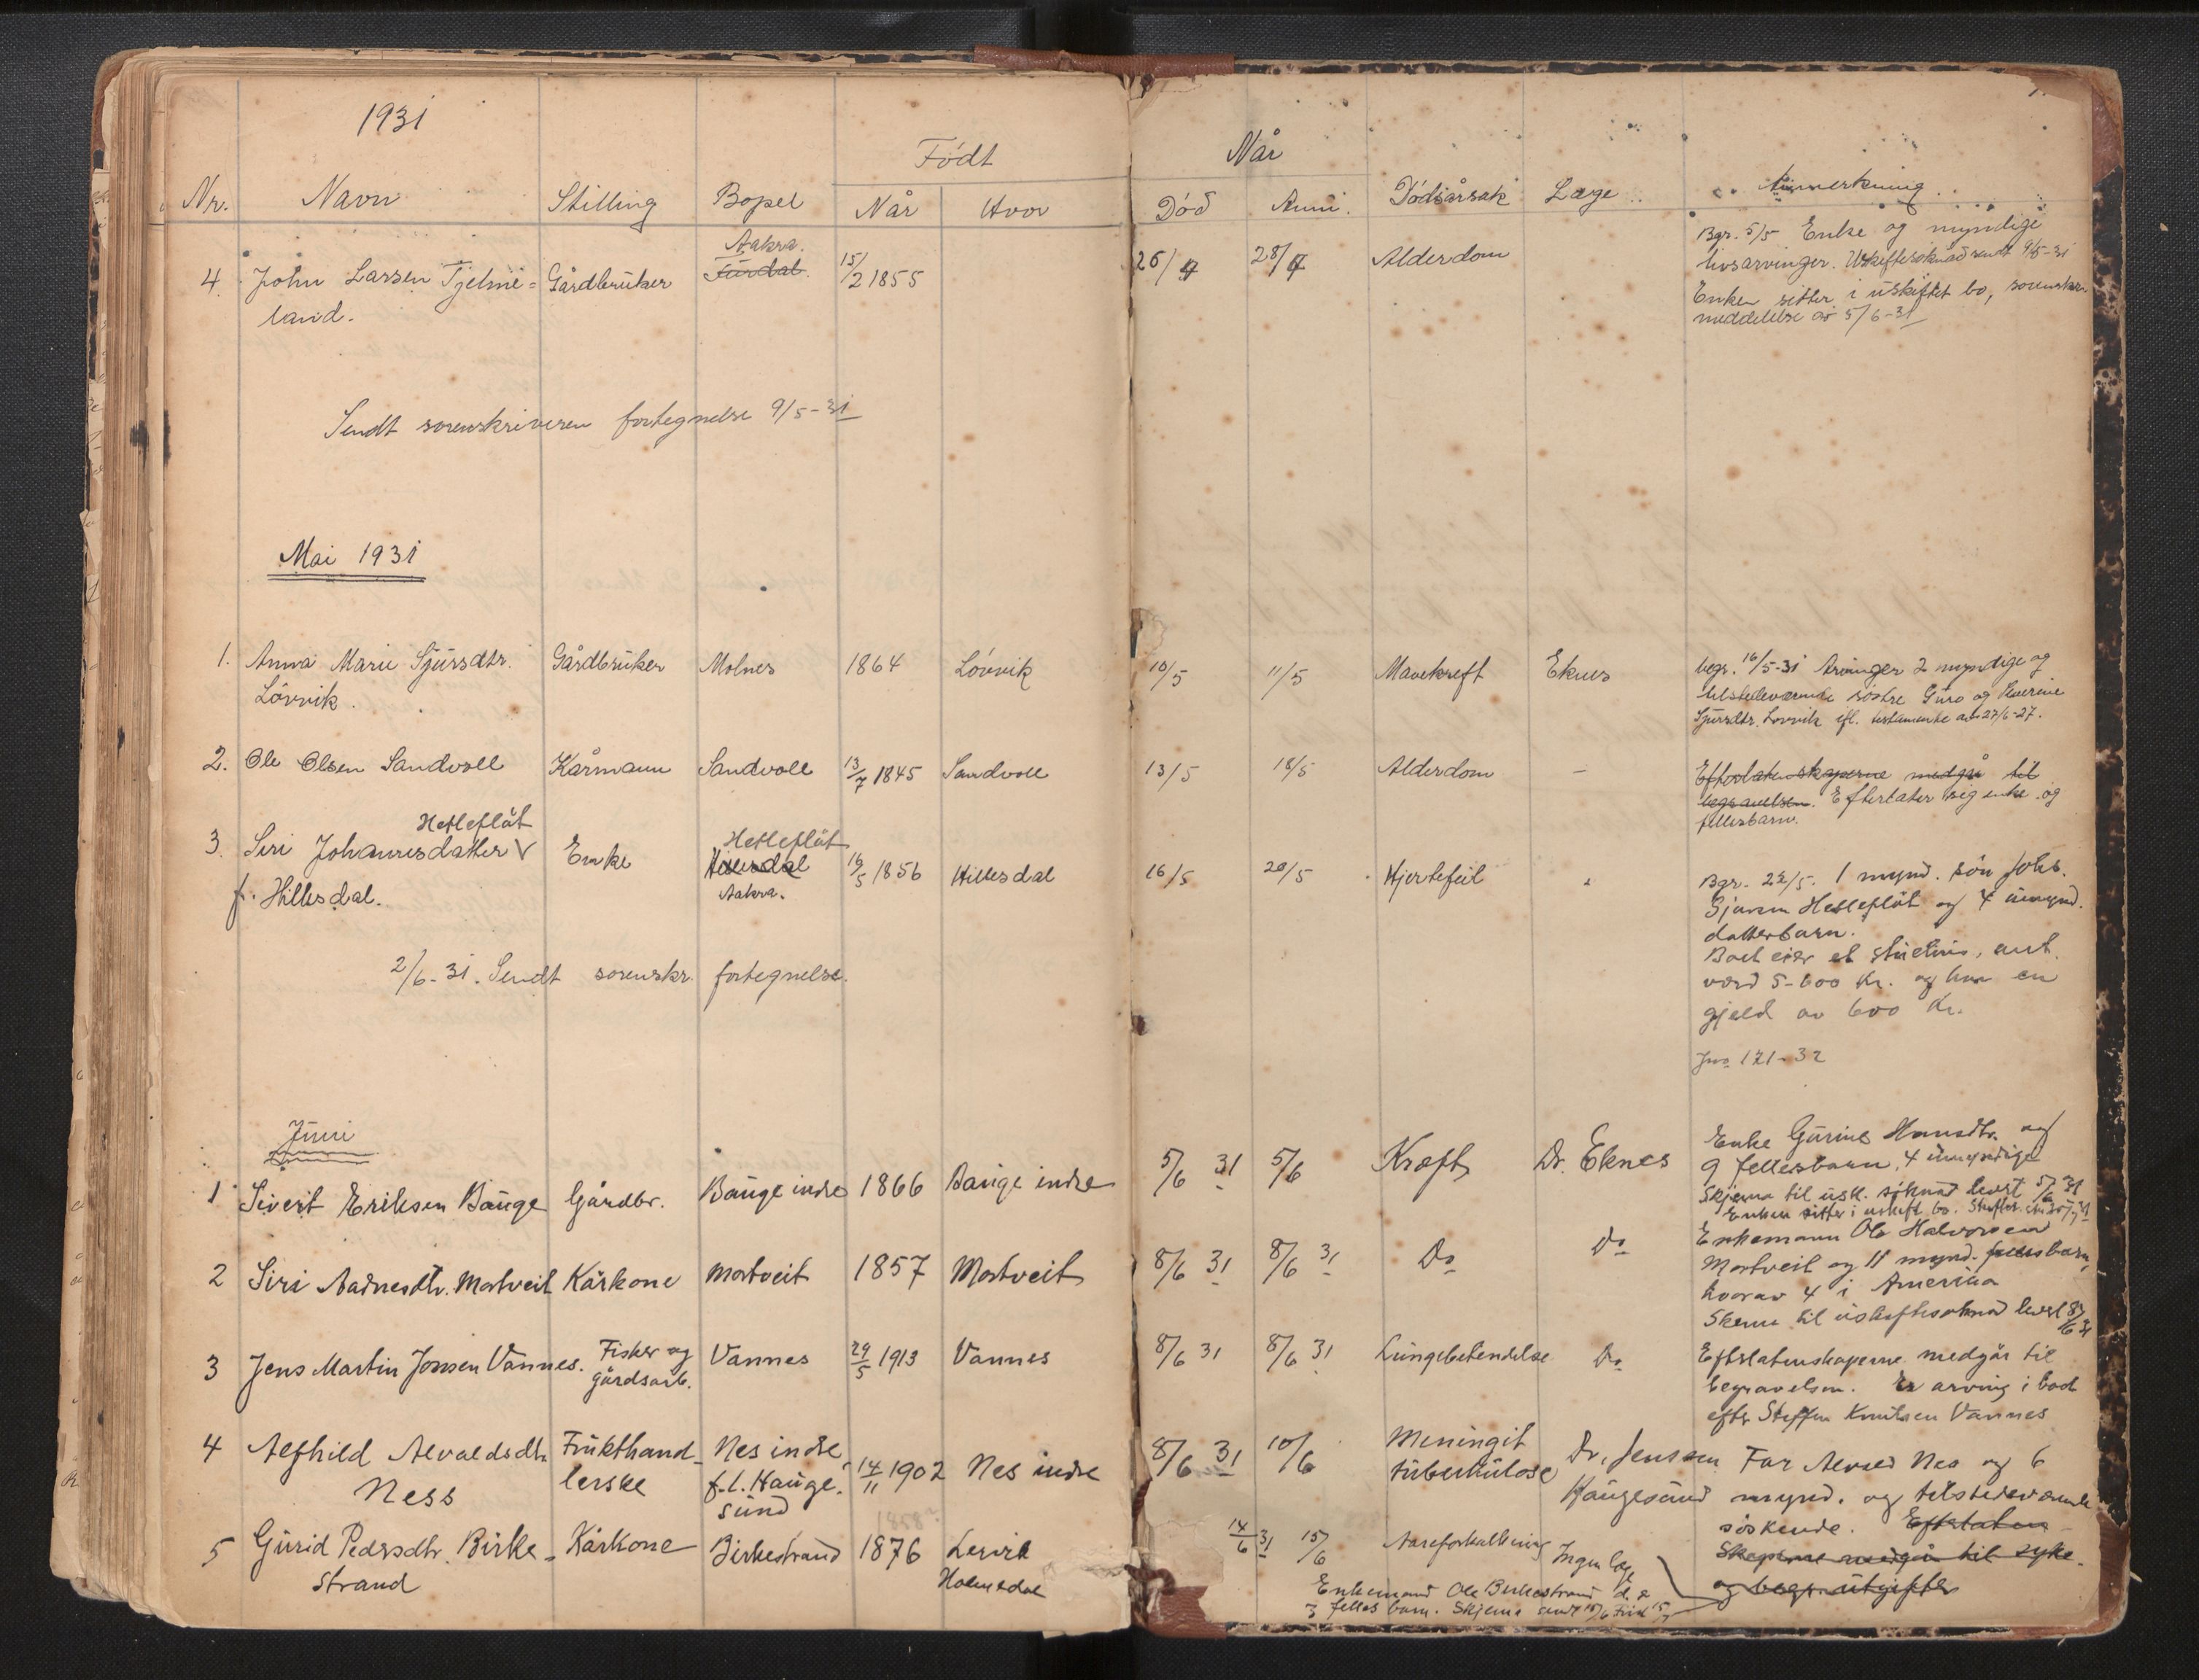 1931
Født
Når
Nr. Navn Stilling Bopel Når Hvor Død Anm. Dødsårsak Læge Anmerkning
4. John Larsen Tjelme= Gårdbruker Aakra. 15/2 1855 26/4 28/4 Alderdom
land.
Bgr. 5/5 Enke og myndige
livsarvinger. Uskiftesøknad sendt 9/5-31
Enken sitter i uskiftet bo, sorenskr.
meddelelse av 5/6-31
Sendt sorenskriveren fortegnelse 9/5-31
Mai 1931
1. Anna Marie Sjursdtr. Gårdbruker Molnes 1864 Løvvik 10/5 11/5 Mavekreft Eknes
Løvvik.
begr. 16/5-31 Arvinger 2 myndige og
tilstedeværende søstre Guro og Severine
Sjursdtr. Løvvik efl. testamente av 27/6-27.
2. Ole Olsen Sandvoll Kårmann Sandvoll 13/7 1845 Sandvoll 13/5 18/5 Alderdom –
Efterlatenskaperne medgår til
begravelsen. Efterlater sig enke og
fellesbarn.
Hetleflåt
3. Siri Johannesdatter Enke Hetleflåt 16/5 1856 Hillesdal 16/5 20/5 Hjertefeil
f. Hillesdal. Aakra.
Bgr. 22/5. 1 mynd. søn Johs.
Hetleflåt og 4 umynd.
datterbarn.
Boet eier et stuehus, ant.
værd 5-600 Kr. og har en
gjeld av 600 Kr.
Jno 121-32
2/6-31. Sendt sorenskr. fortegnelse.
Juni
1 Sivert Eriksen Bauge Gårdbr. Bauge indre 1866 Bauge indre 5/6 31 5/6 Kræft Dr. Eknes
Enke Gurine Hansdtr. og
9 fellesbarn, 4 umyndige
Skjema til usk. søknad levert 5/6 31
Enken sitter i uskift. bo.
2 Siri Aadnesdtr. Mortveit Kårkone Mortveit 1857 Mortveit 8/6 31 8/6 31 Do Do
Enkemann Ole Halvorsen
Mortveit og 11 mynd. fellesbarn,
hvorav 4 i Amerika
Skema til uskiftesøknad levert 8/6 31
3 Jens Martin Jonsen Vannes. Fisker og Vannes 29/5 1913 Vannes 8/6 31 8/6 31 Lungebetendelse Do
gårdsarb.
Efterlatenskaperne medgår til
begravelsen. Er arving i boet
efter Steffen Knutsen Vannes
4 Alfhild Alvaldsdtr. Frukthand- Nes indre, 14/11 1902 Nes indre 8/6 31 10/6 Meningit Dr. Jensen
Ness lerske f.t. Hauge- tuberkulose Haugesund
sund
Far Nes og 6
mynd. og tilstedeværende
søskende. Efterlaten-
skaperne medgår til syke-
og begr. utgifter
5 Gurid Pedersdtr. Birke- Kårkone Birkestrand 1876 14/6 31 15/6 Aareforkalkning Ingen læge
strand Holmedal
Enkemand Ole Birkestrand
3 fellesbarn. Skjema sendt 15/6